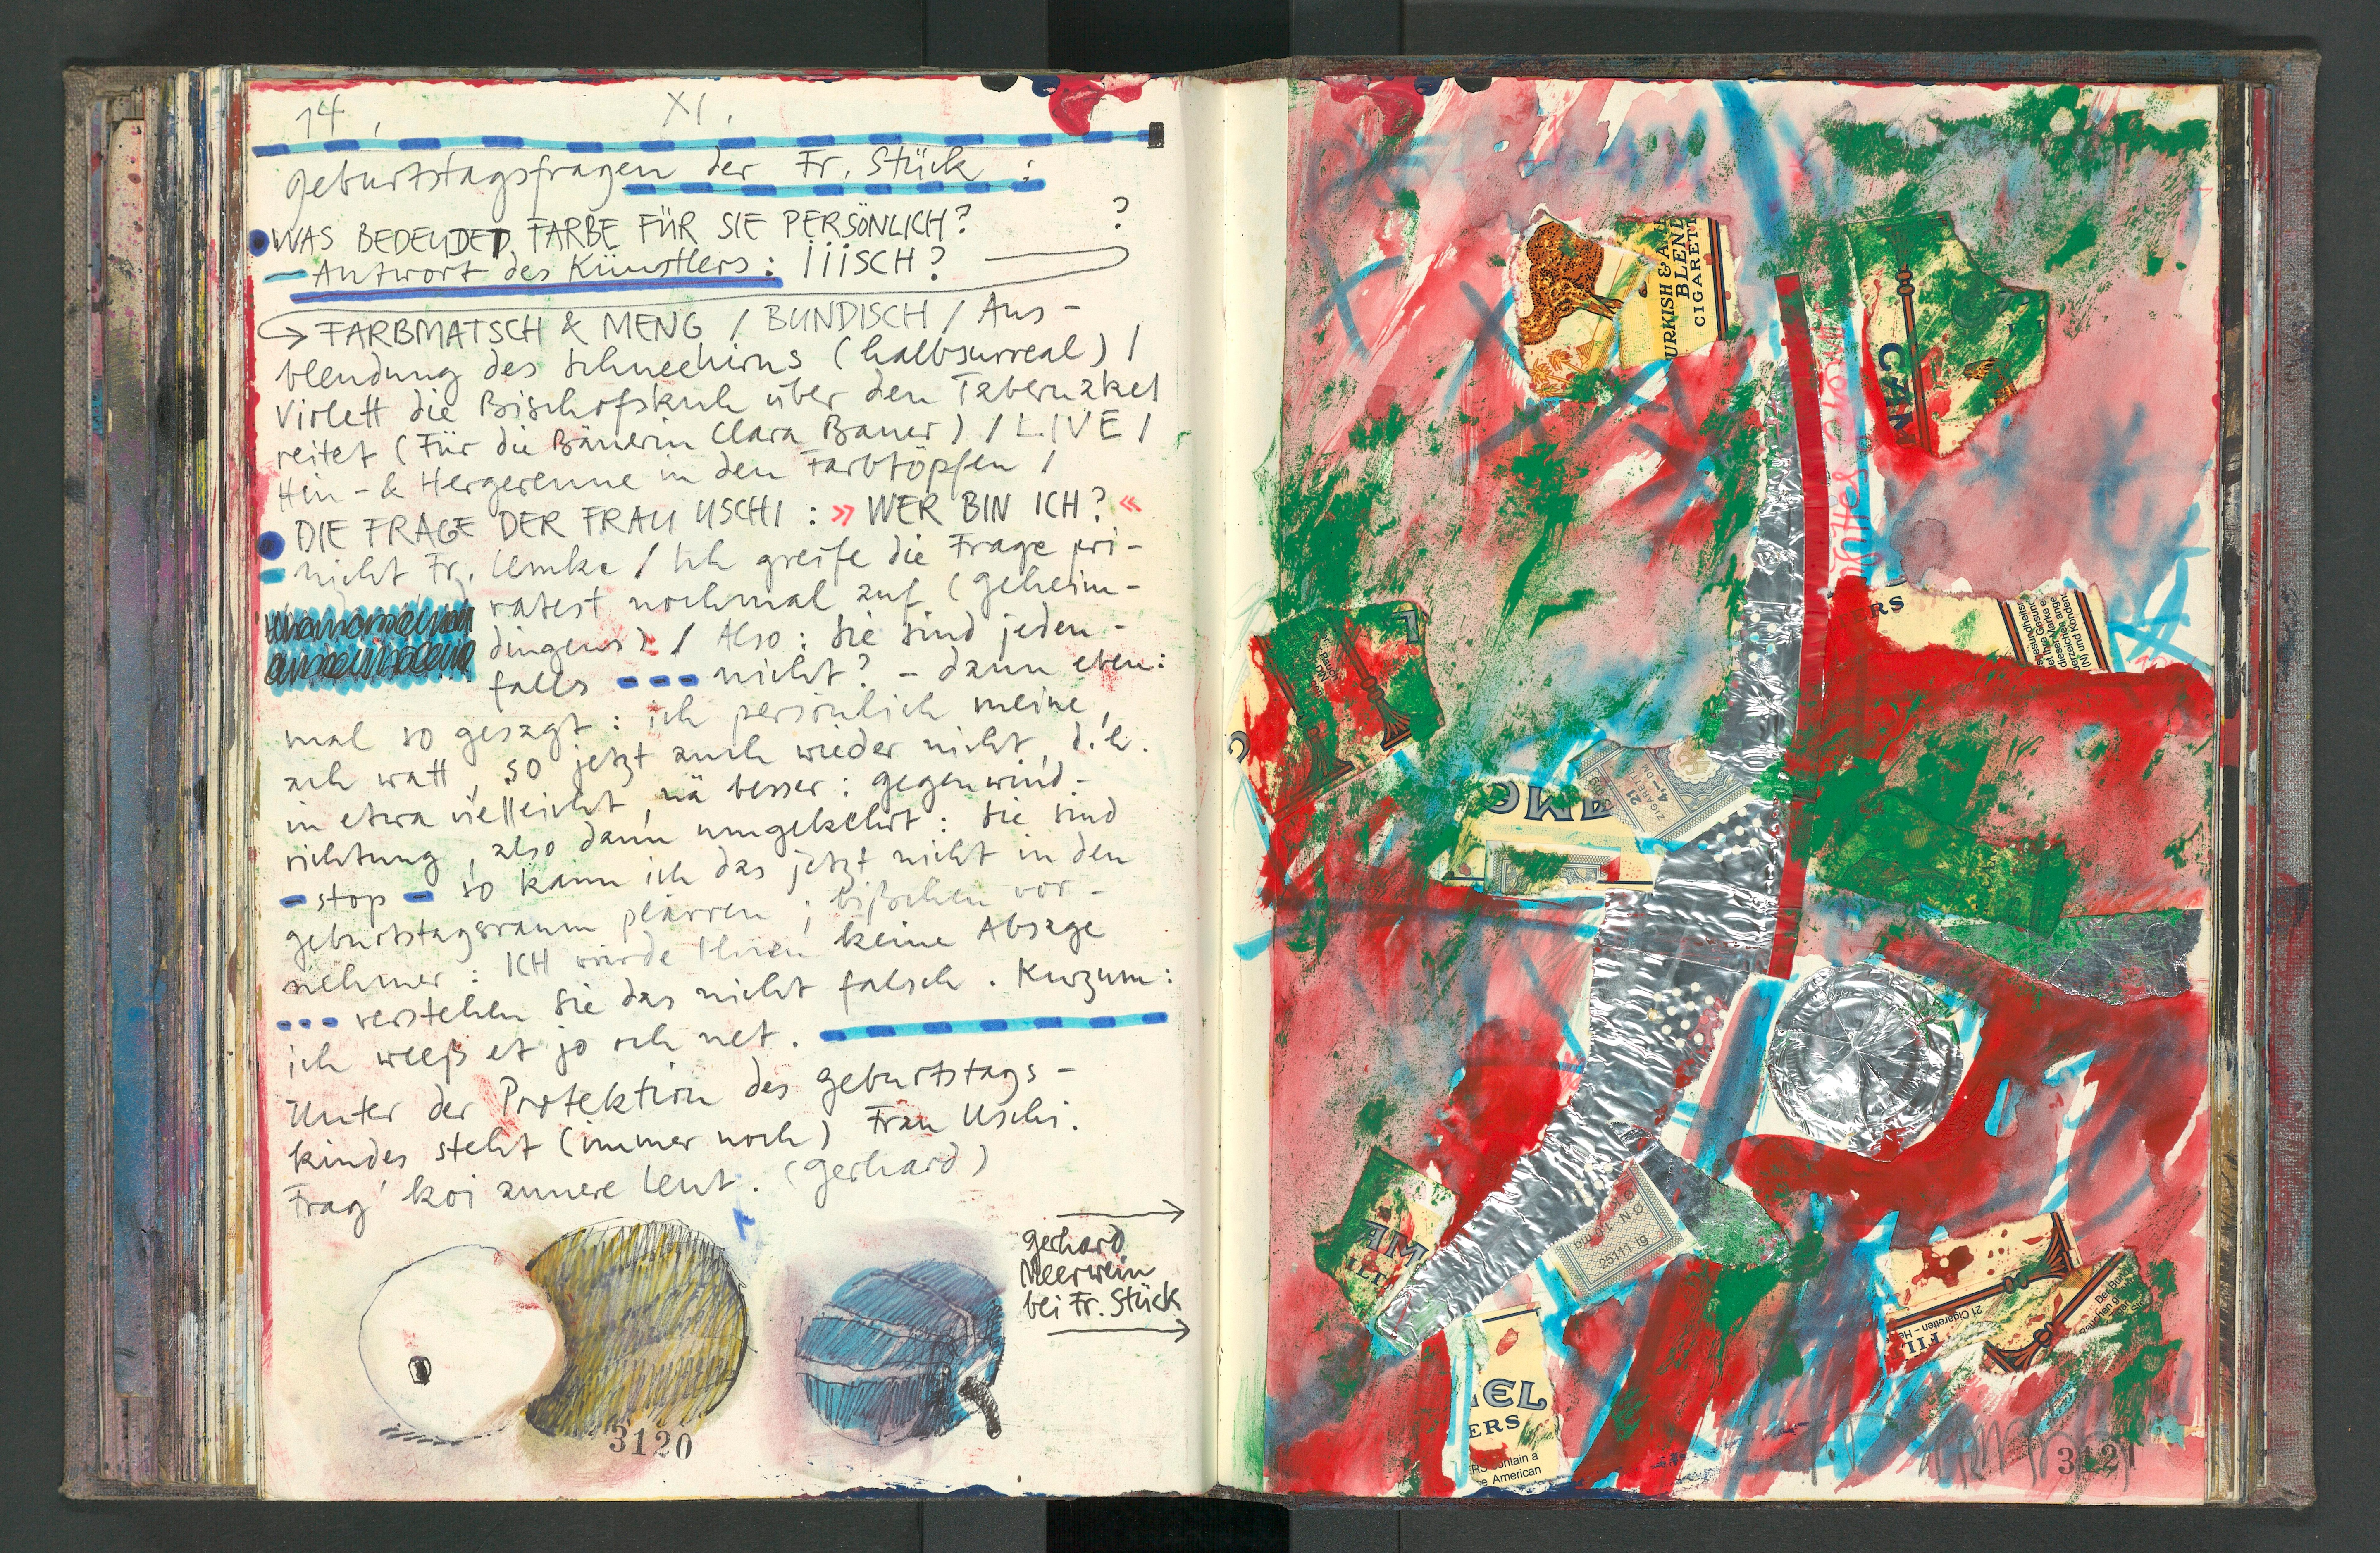 14. XI.
geburtstagsfragen der Fr. Stück :
WAS BEDEUDET FARBE FÜR SIE PERSÖNLICH? ?
– Antwort des Künstlers : IiiSCH?
→ FARBMATSCH & MENG / BUNDISCH / Aus-
blendung des Schneehirns (halbsurreal) /
Violett die Bischofskuh über den Tabernakel
reitet (Für die Bäuerin Clara Bauer) / LIVE /
Hin- & Hergerenne in den Farbtöpfen /
DIE FRAGE DER FRAU USCHI : » WER BIN ICH? «
– nicht Fr. Lemke / Ich greife die Frage pri-
vatest nochmal auf (geheim-
dingens) / Also : Sie sind jeden-
falls --- nicht? – dann eben:
mal so gesagt : ich persönlich meine,
ach watt, so jetzt auch wieder nicht, d.h.
in etwa vielleicht, nä besser : gegenwind-
richtung, also dann umgekehrt : Sie sind
– stop – so kann ich das jetzt nicht in den
geburtstagsraum plärren ; bißchen vor-
nehmer : ICH würde Ihnen keine Absage
--- verstehen Sie das nicht falsch. Kurzum:
ich weeß et jo och net.
Unter der Protektion des geburtstags-
kindes steht (immer noch) Frau Uschi.
Frag' koi annere Leut. (gerhard)
gerhard
Meerwein
bei Fr. Stück
3120
URKISH & A
BLEND
CIGARETT
CAM
TERS
C
AME
21
ZIGARETT
4,-
AME
ILT
25111-19
21 Cigaretten
FIL
MEL
ERS
ontain a
e American
3121